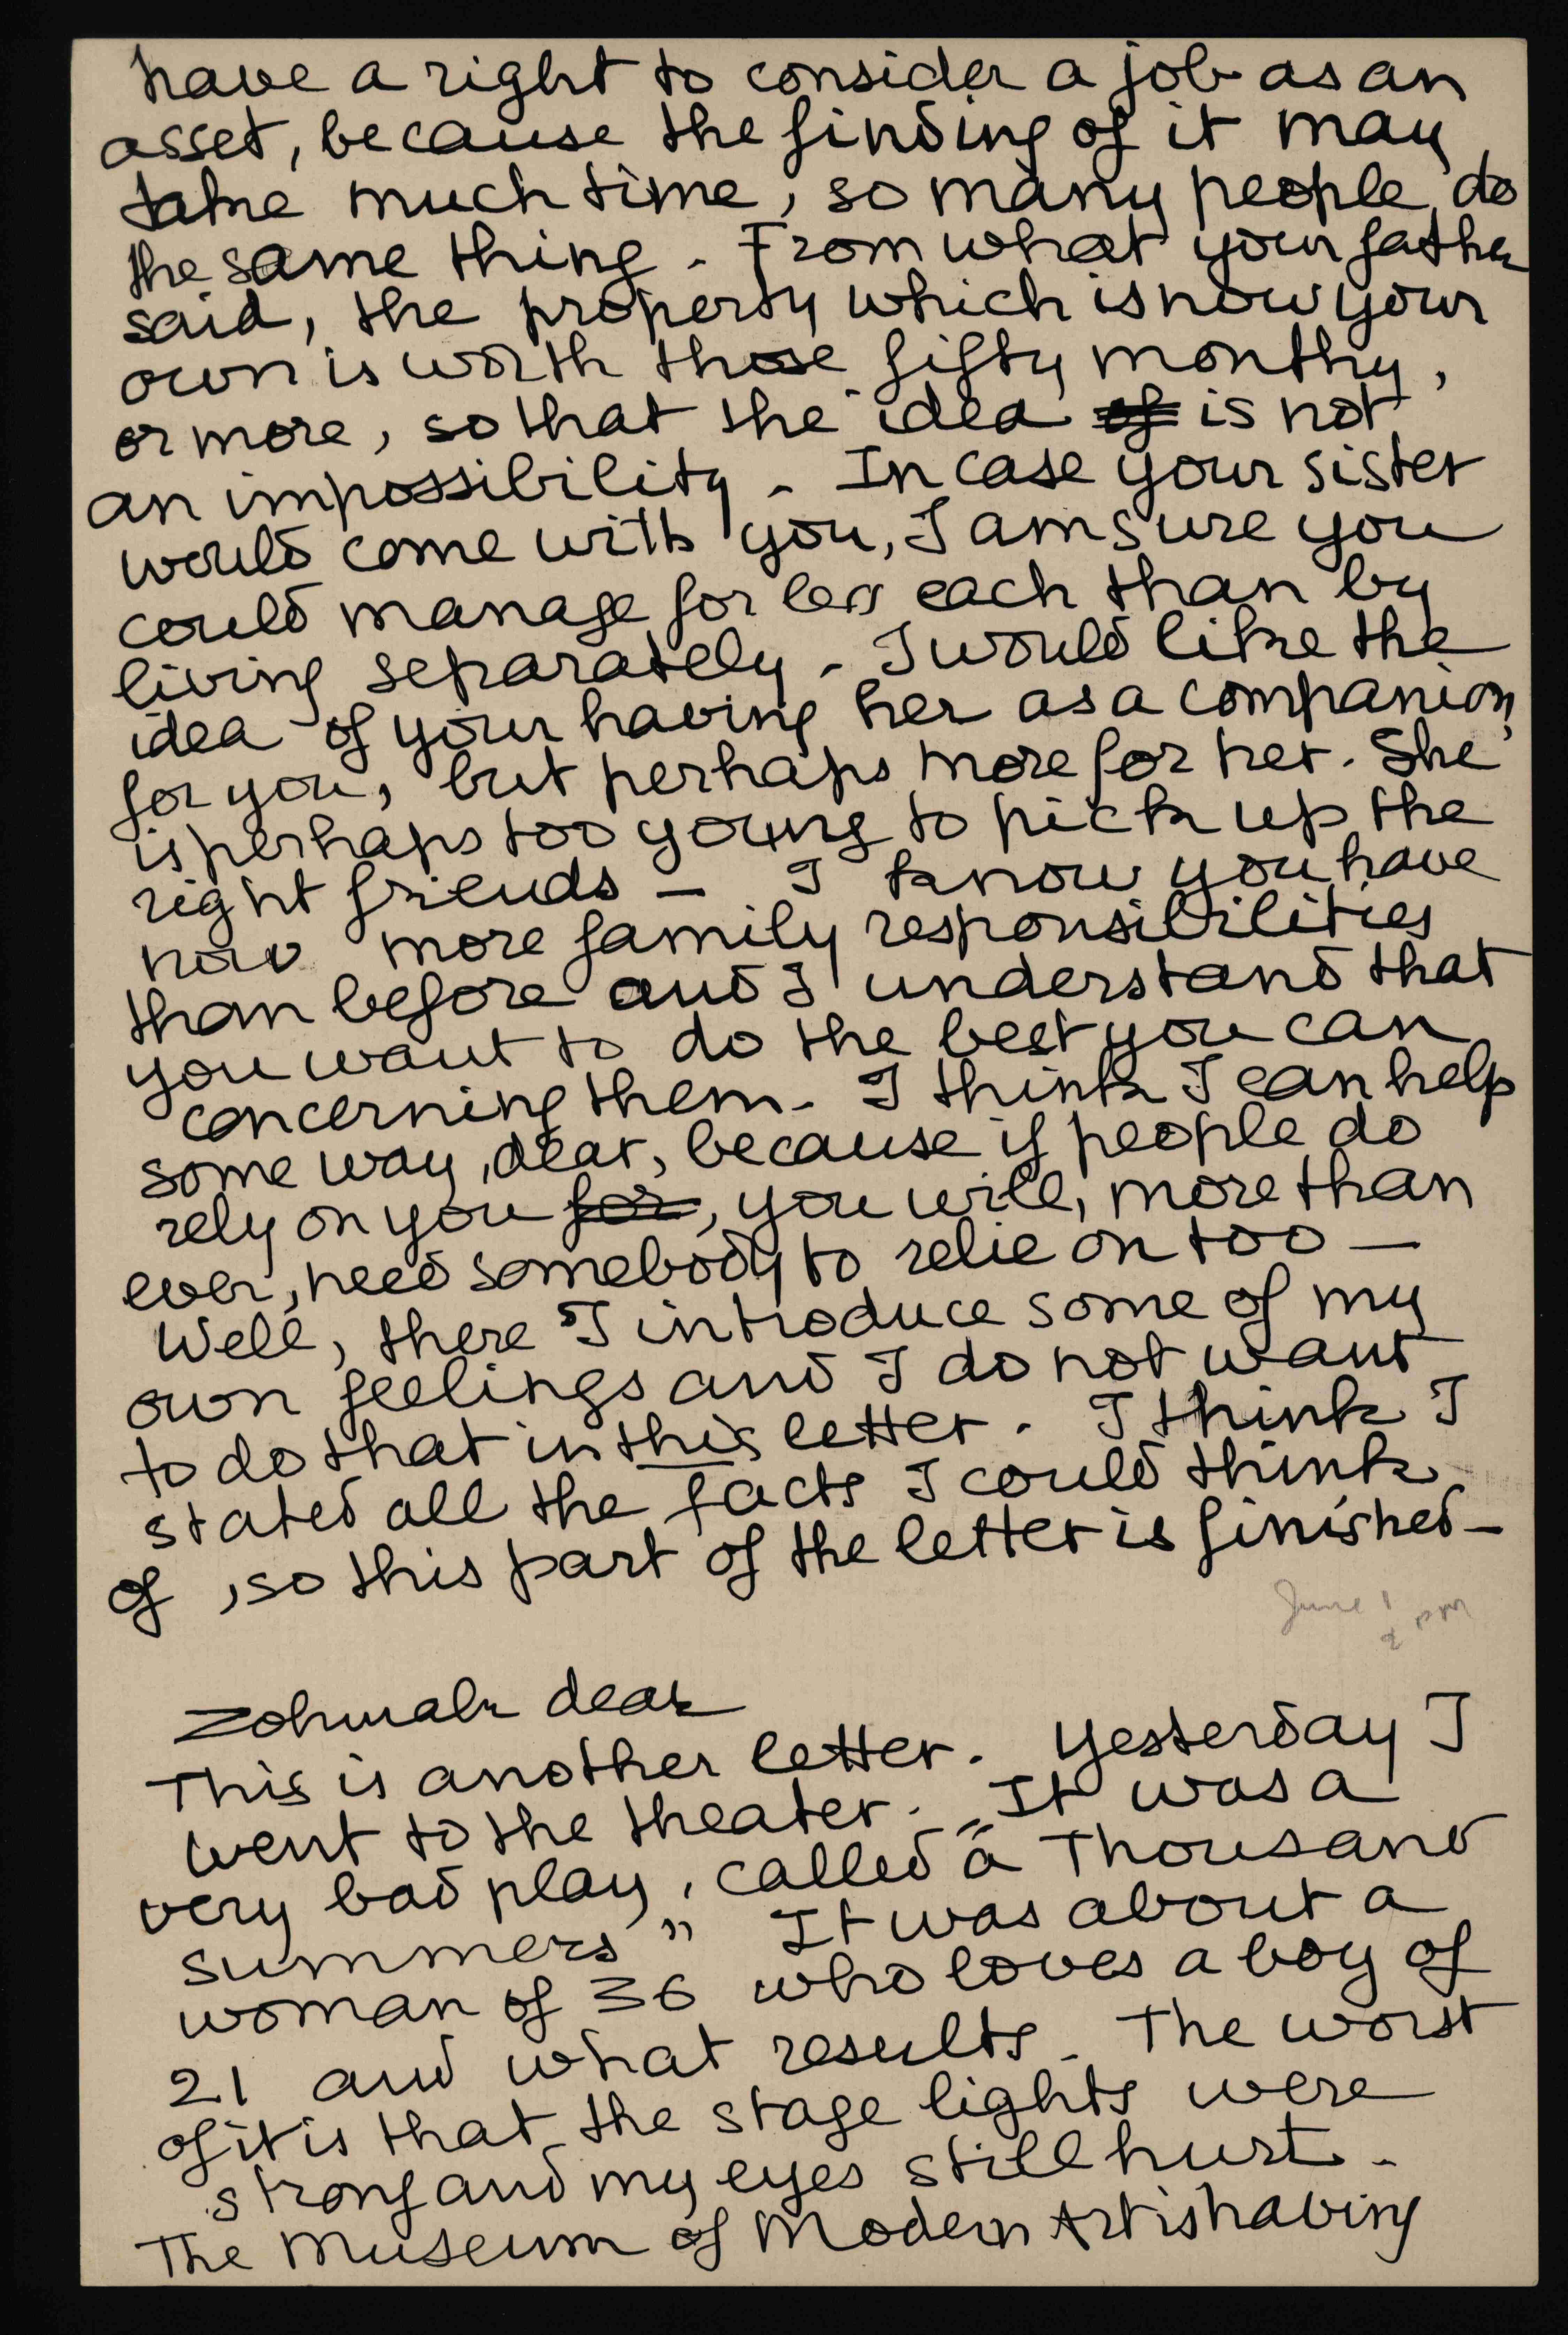 have a right to consider a job as an
asset, because the finding of it may
take much time, so many people do
the same thing. From what your father
said, the property which is now your
own is worth those fifty monthy,
or more, so that the idea of is not
an impossibility. In case your sister
would come with you, I am sure you
could manage for less each than by
living separately. I would like the
idea of your having her as a companion,
for you, but perhaps more for her. She
is perhaps too young to pick up the
right friends — I know you have
now more family responsibilities
than before and I understand that
you want to do the best you can
concerning them. I think I can help
some way, dear, because if people do
rely on you for, you will, more than
ever, need somebody to relie on too —
Well, there I introduce some of my
own feelings and I do not want
to do that in this letter. I think I
stated all the facts I could think
of, so this part of the letter is finished —
June 1
2 pm
Zohmah dear
This is another letter. Yesterday I
went to the theater. It was a
very bad play, called „a Thousand
summers" It was about a
woman of 36 who loves a boy of
21 and what results. The worst
of it is that the stage lights were
strong and my eyes still hurt.
The Museum of Modern Art is having